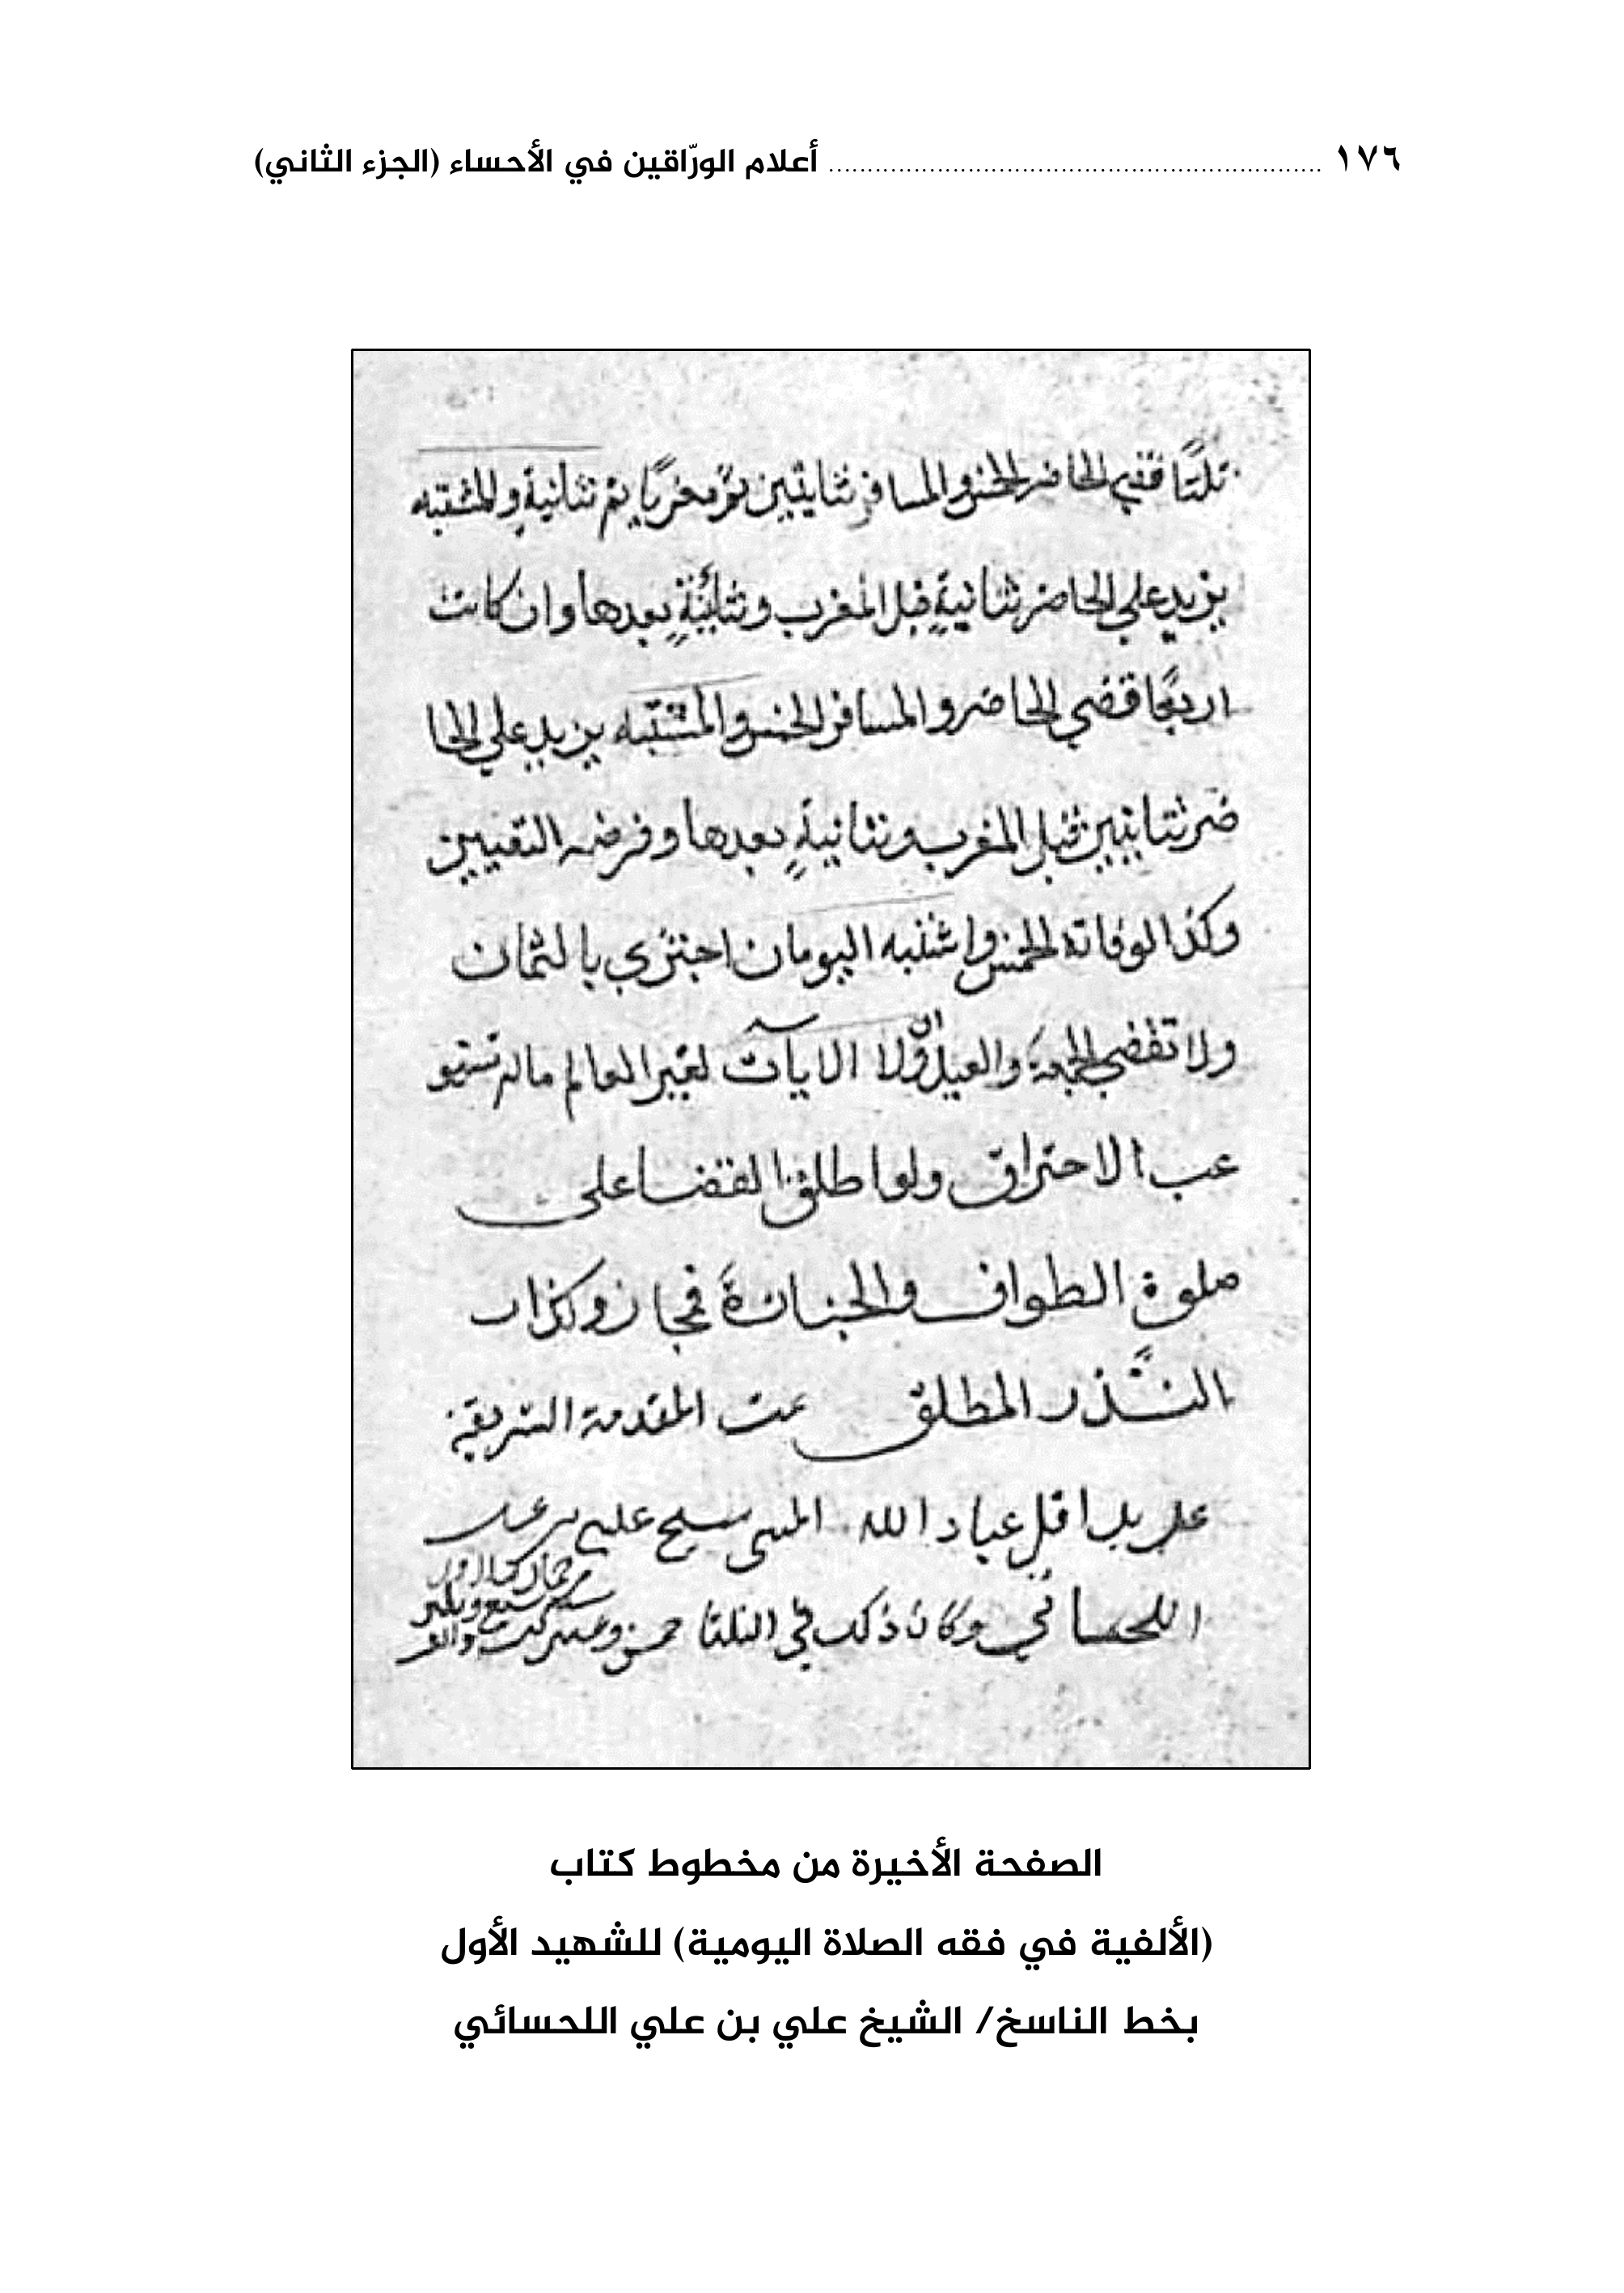 ١٧٦ ........ أعلام الورّاقين في الأحساء (الجزء الثاني)
ثلثًا قضى الحاضر الخمس والمسافر ثنائيتين ثم مغربًا ثم ثنائية والمشتبه
يزيد على الحاضر ثنائيةٍ قبل المغرب وثنائيّةٍ بعدها وان كانت
اربعًا قضى الحاضر والمسافر الخمس والمشتبه يزيد على الحا
ضر ثنائيتين قبل المغرب وثنائيةٍ بعدها وفرضه التعيين
وكذا لو فاته الخمس واشتبه اليومان اجتزي بالثمان
ولا تقضي الجمعة والعيدان ولا الايات لغير العالم ما لم تستو
عب الاحتراق ولو اطلق القضا على
صلوة الطواف والجنازة فمجاز وكذا
النذر المطلق تمت المقدمة الشريفة
على يد اقل عباد الله المسي علي بن علي
اللحسائي وكان ذلك في الثلثا
الصفحة الأخيرة من مخطوط كتاب
(الألفية في فقه الصلاة اليومية) للشهيد الأول
بخط الناسخ/ الشيخ علي بن علي اللحسائي